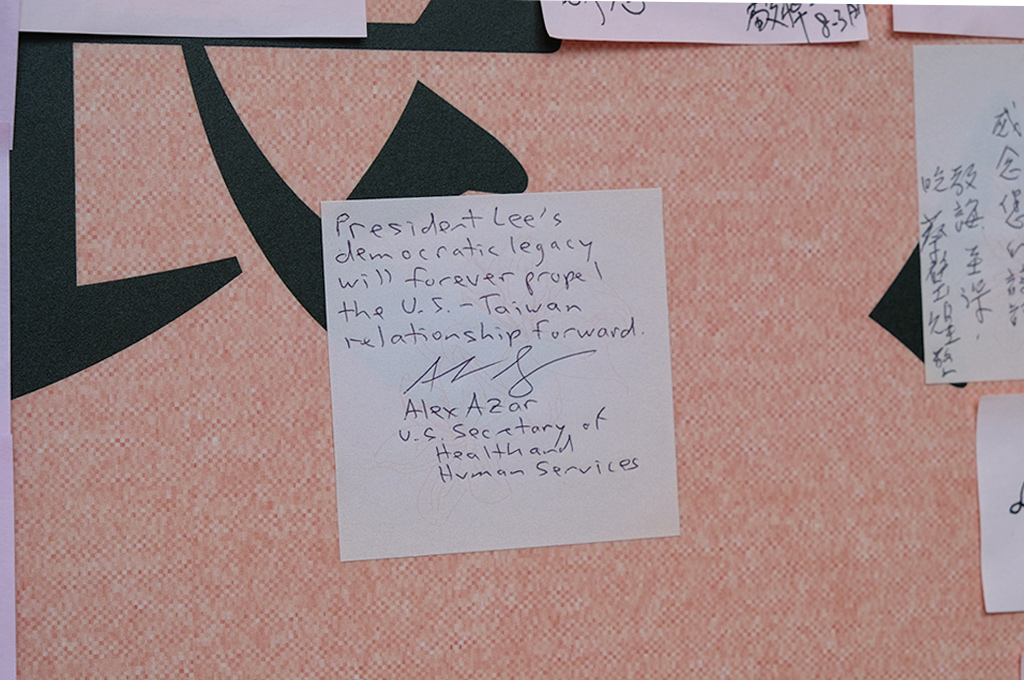 President Lee's
democratic legacy
will forever propel
the U.S.-Taiwan
relationship forward.
Alex Azar
U.S. Secretary of
Health and
Human Services
感念您的
教誨至深
敬悼 8.3